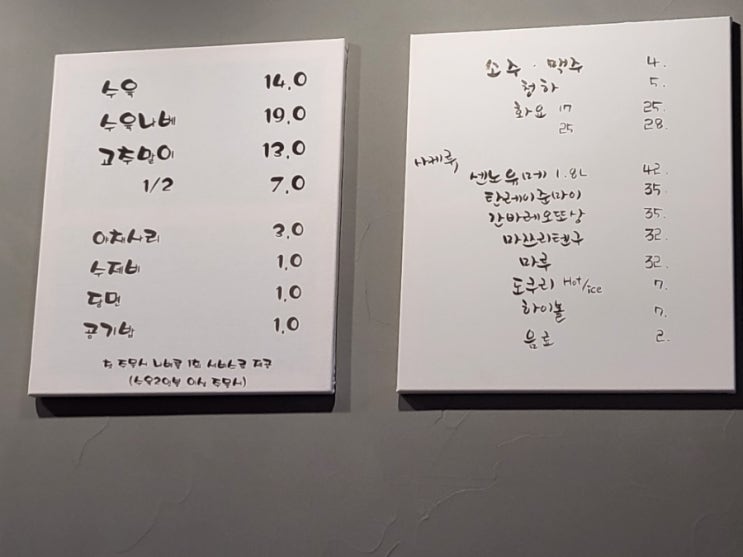 수육 14.0
수육나베 19.0
고추말이 13.0
1/2 7.0
야채사리 3.0
수제비 1.0
당면 1.0
공기밥 1.0
술 주문시 나베로 1회 서비스로 제공
(수육2인분 이상 주문시)
소주 · 맥주 4.
청하 5.
화요 17 25.
25 28.
사케류,
센노유메 1.8L 42.
탄레이쥰마이 35.
간바레오또상 35.
마쯔리텐구 32.
마루 32.
도쿠리 Hot/ice 7.
하이볼 7.
음료 2.